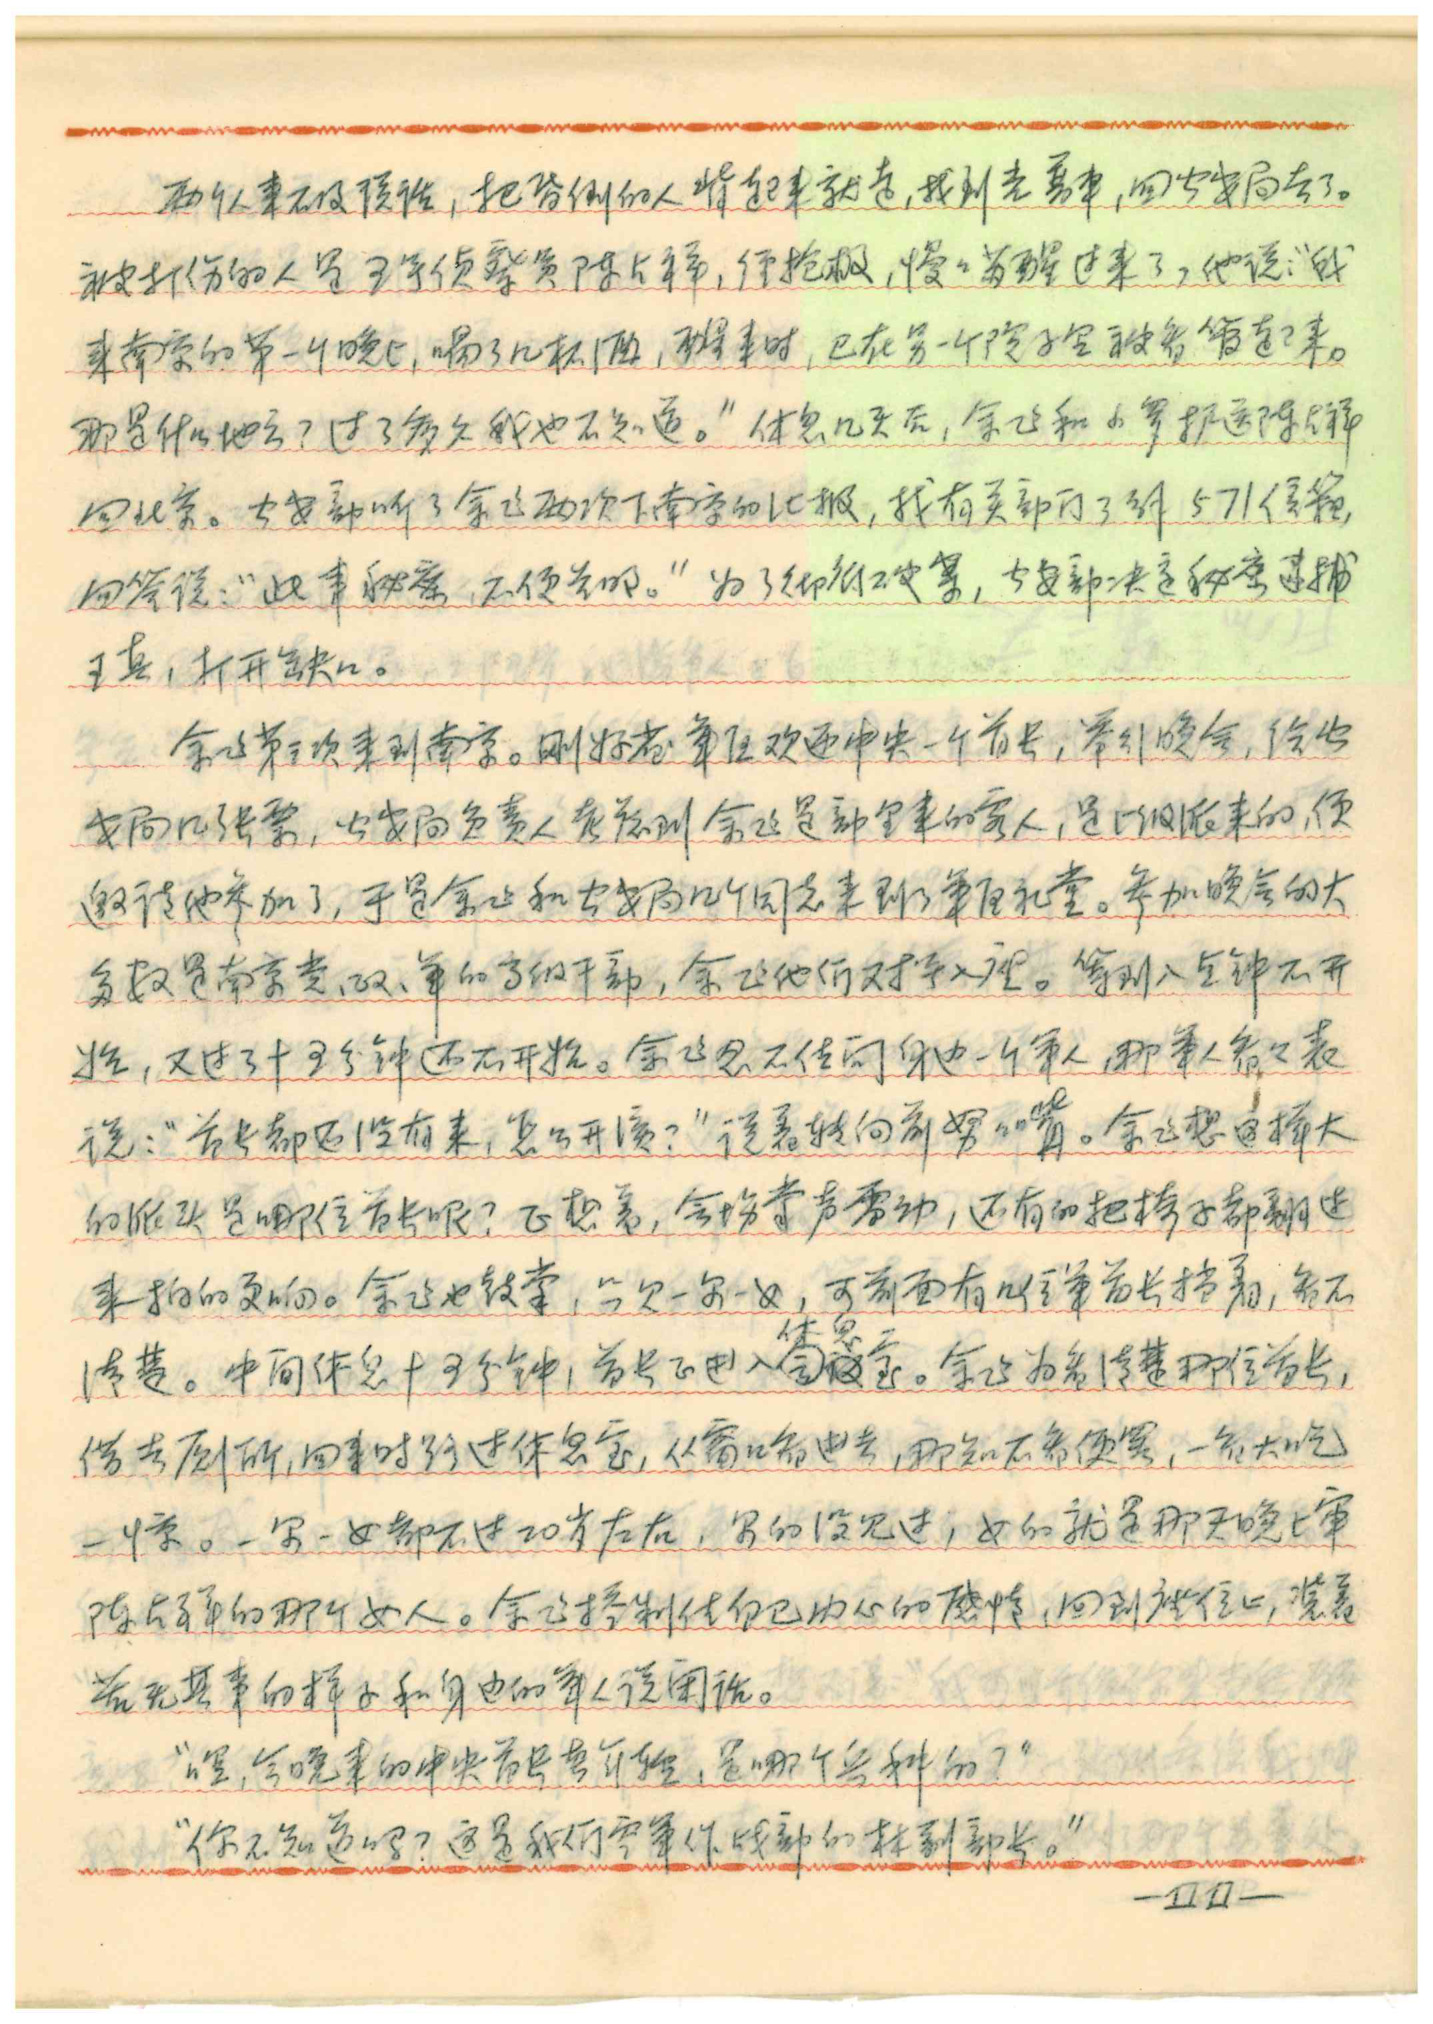 两个人来不及说话，把昏倒的人背起来就走，找到老高車，回公安局去了。
被打伤的人是王等侦察员陈占祥，经抢救，慢々苏醒过来了，他说：“我
来南京的第一个晚上，喝了几杯酒，醒来时，已在另一个院子里被看管起来。
那是什么地方？过了多久我也不知道。”休息几天后，余飞和小罗护送陈占祥
回北京。公安部听了余飞两次下南京的汇报，找有关部门了解571信箱，
回答说：“此事秘密，不便公明。”为了彻底破案，公安部决定秘密逮捕
王真，打开缺口。
余飞第三次来到南京。刚好省军区欢迎中央一个首长，举引晚会，给公
安局几张票，公安局负责人考虑到余飞是部里来的客人，是上级派来的，便
邀请他参加了，于是余飞和公安局几个同志来到了军区礼堂。参加晚会的大
多数是南京党、政、军的高级干部，余飞他们对号入座。等到八点钟不开
始，又过了十五分钟还不开始。余飞忍不住问身边一个军人，那军人看々表
说：“首长都还没有来，怎么开演？”说着转向前努々嘴。余飞想这样大
的派头是哪位首长呢？正想着，会场掌声雷动，还有的把椅子都翻过
来拍的更响。余飞也鼓掌，只见一男一女，可前面有几位军首长挡着，看不
清楚。中间休息十五分钟，首长正进入休息室。余飞为看清楚那位首长，
借去厕所，回来时路过休息室，从窗口看进去，那知不看便罢，一看大吃
一惊。一男一女都不过20岁左右，男的没见过，女的就是那天晚上审
陈占祥的那个女人。余飞控制住自己内心的感情，回到座位上，装着
若无其事的样子和身边的军人说闲话。
“嘿，今晚来的中央首长真年轻，是哪个兵种的？”
“你不知道吗？这是我们空军作战部的林副部长。”